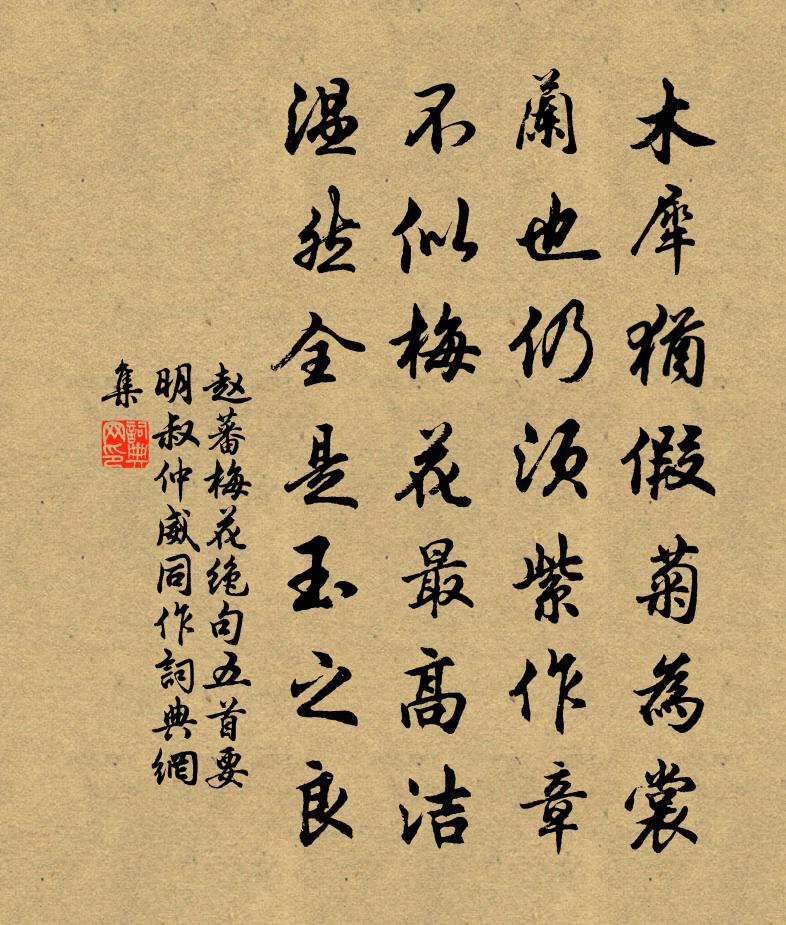 木犀猶假菊為裳
蘭也仍須紫作章
不似梅花最高洁
温然全是玉之良
赵蕃梅花绝句五首要
明叔仲威同作詞典網
集
詞典
网印